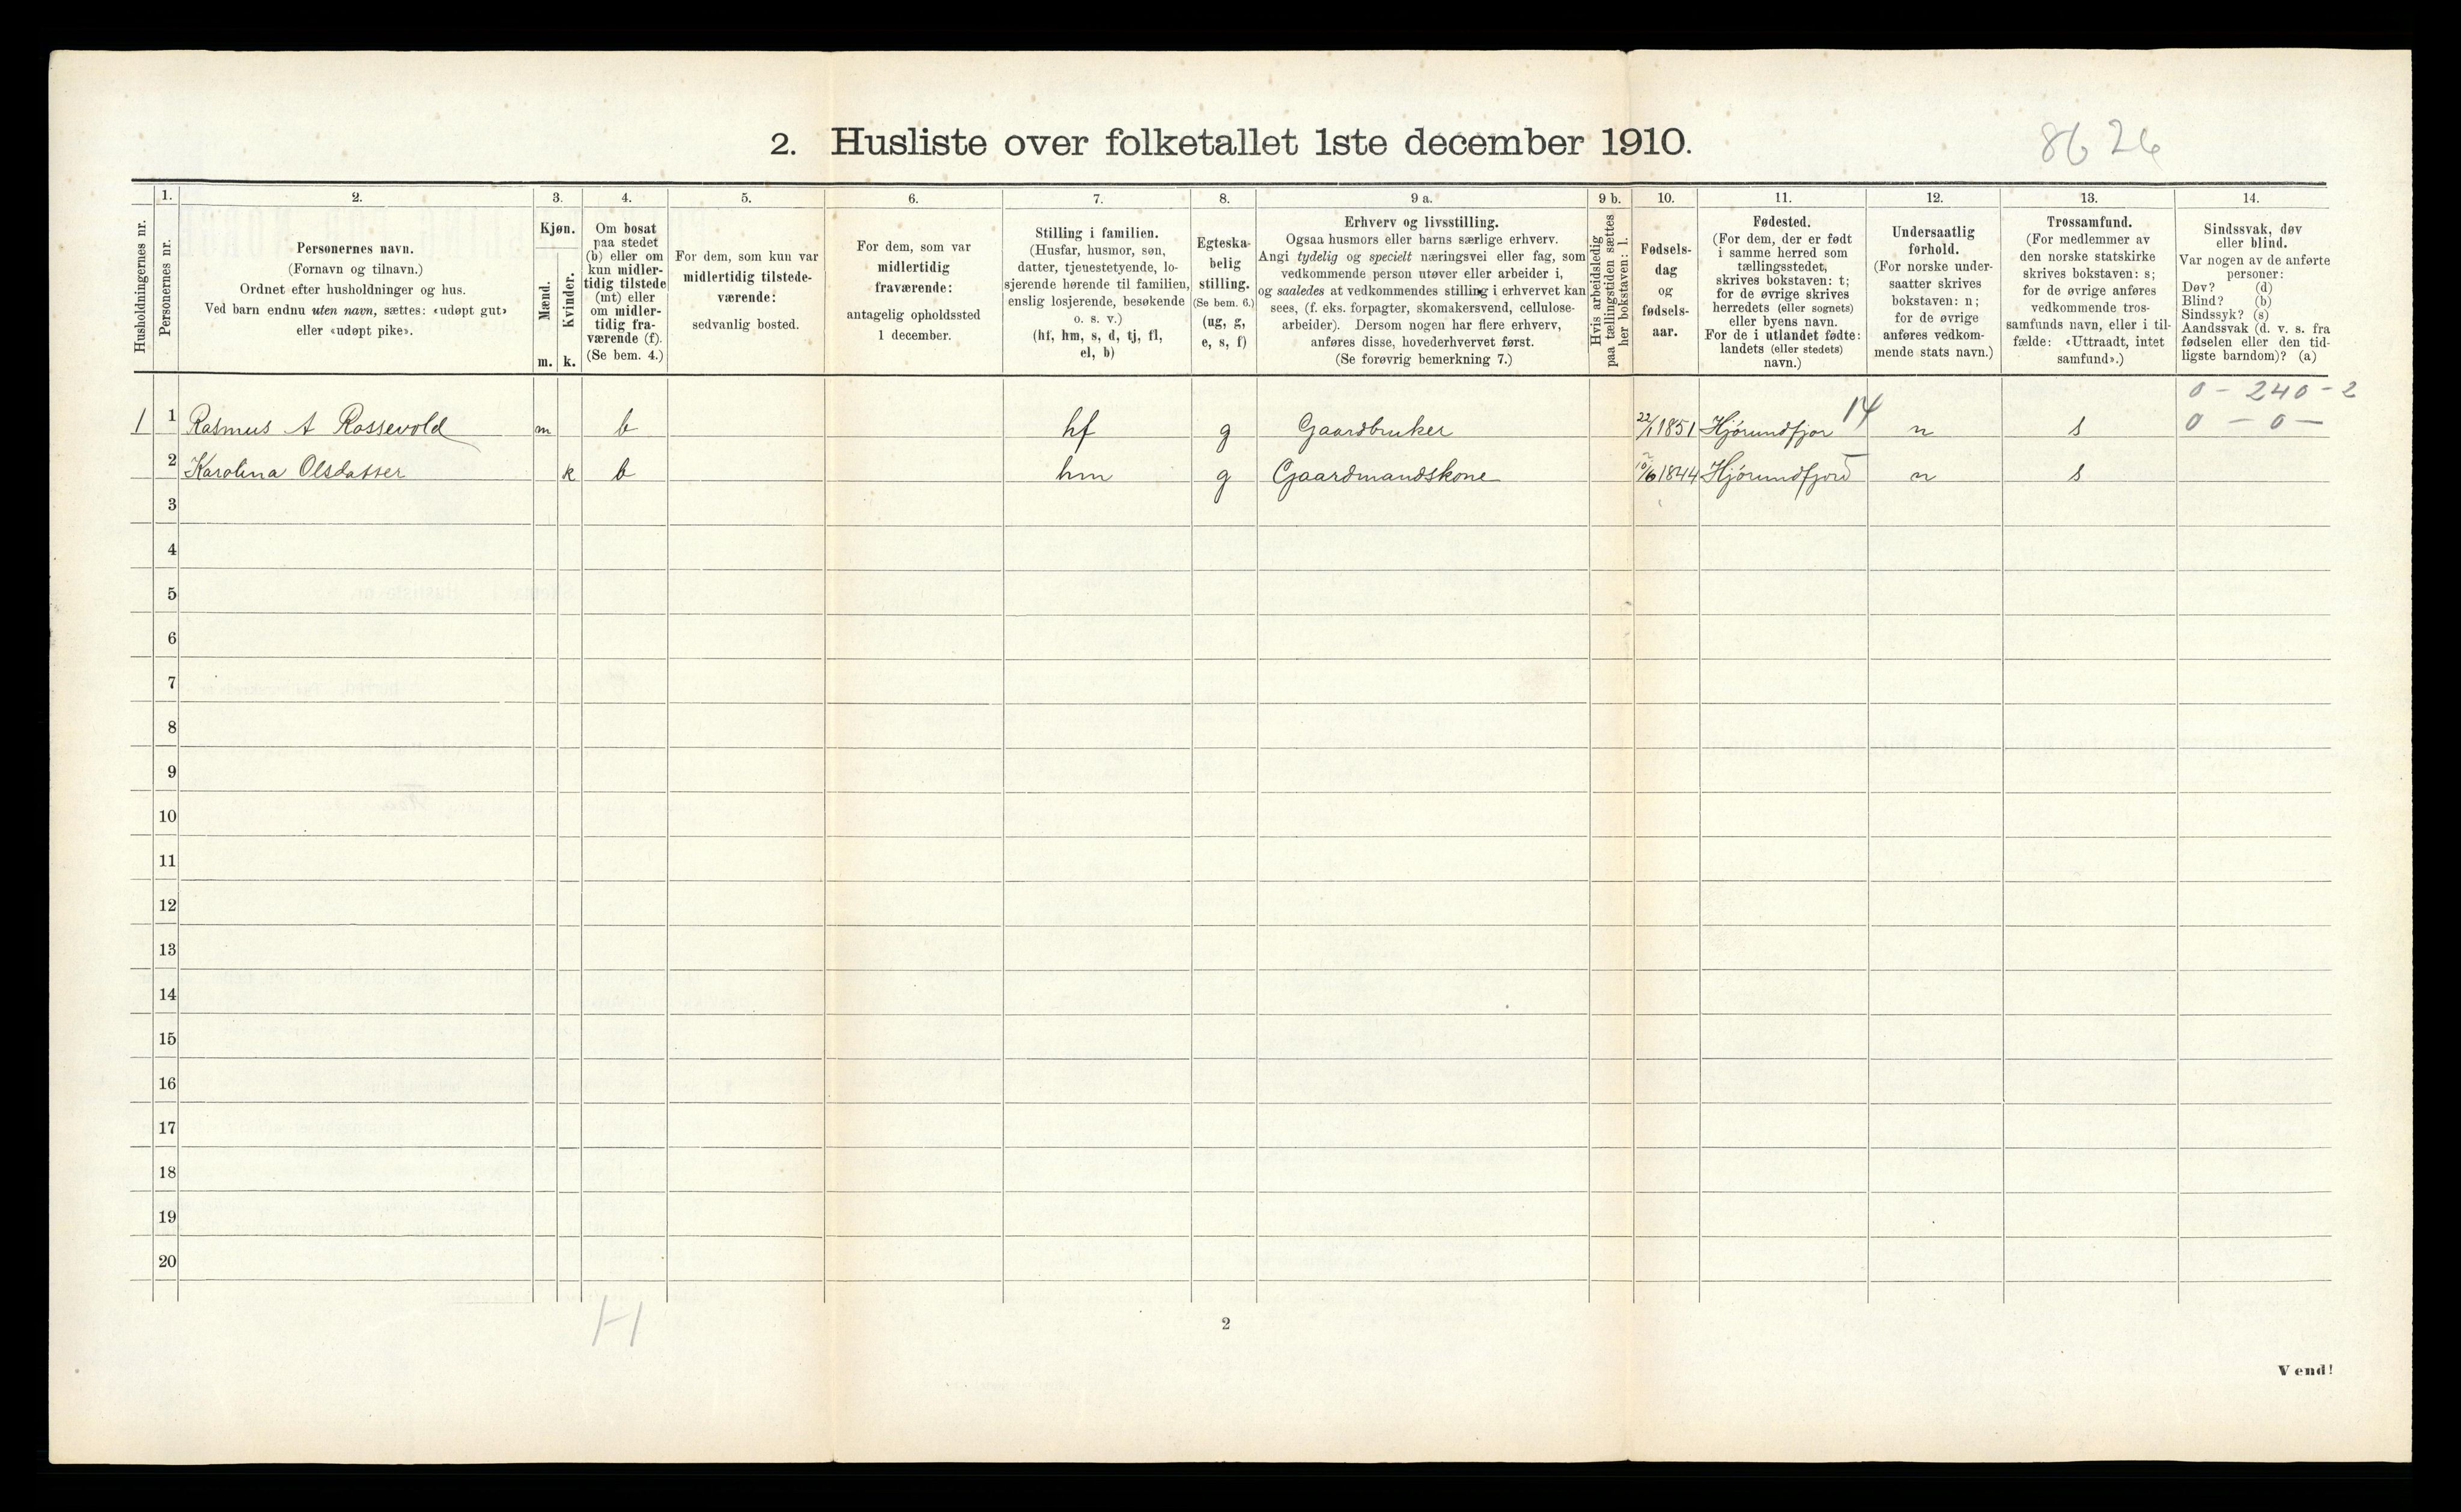 2. Husliste over folketallet 1ste december 1910.
86 26
Husholdningernes nr.
1.
Personernes nr.
2.
Personernes navn.
(Fornavn og tilnavn.)
Ordnet efter husholdninger og hus.
Ved barn endnu uten navn, sættes: «udøpt gut»
eller «udøpt pike».
3.
Kjøn.
Mænd.
m.
Kvinder.
k.
4.
Om bosat
paa stedet
(b) eller om
kun midler-
tidig tilstede
(mt) eller
om midler-
tidig fra-
værende (f).
(Se bem. 4.)
5.
For dem, som kun var
midlertidig tilstede-
værende:
sedvanlig bosted.
6.
For dem, som var
midlertidig
fraværende:
antagelig opholdssted
1 december.
7.
Stilling i familien.
(Husfar, husmor, søn,
datter, tjenestetyende, lo-
sjerende hørende til familien,
enslig losjerende, besøkende
o. s. v.)
(hf, hm, s, d, tj, fl,
el, b)
8.
Egteska-
belig
stilling.
(Se bem. 6.)
(ug, g,
e, s, f)
9 a.
Erhverv og livsstilling.
Ogsaa husmors eller barns særlige erhverv.
Angi tydelig og specielt næringsvei eller fag, som
vedkommende person utøver eller arbeider i,
og saaledes at vedkommendes stilling i erhvervet kan
sees, (f. eks. forpagter, skomakersvend, cellulose-
arbeider). Dersom nogen har flere erhverv,
anføres disse, hovederhvervet først.
(Se forøvrig bemerkning 7.)
9 b.
Hvis arbeidsledig
paa tællingstiden sættes
her bokstaven: l.
10.
Fødsels-
dag
og
fødsels-
aar.
11.
Fødested.
(For dem, der er født
i samme herred som
tællingsstedet,
skrives bokstaven: t;
for de øvrige skrives
herredets (eller sognets)
eller byens navn.
For de i utlandet fødte:
landets (eller stedets)
navn.)
12.
Undersaatlig
forhold.
(For norske under-
saatter skrives
bokstaven: n;
for de øvrige
anføres vedkom-
mende stats navn.)
13.
Trossamfund.
(For medlemmer av
den norske statskirke
skrives bokstaven: s;
for de øvrige anføres
vedkommende tros-
samfunds navn, eller i til-
fælde: «Uttraadt, intet
samfund».)
14.
Sindssvak, døv
eller blind.
Var nogen av de anførte
personer:
Døv? (d)
Blind? (b)
Sindssyk? (s)
Aandssvak (d. v. s. fra
fødselen eller den tid-
ligste barndom)? (a)
0 - 240 - 2
1 1 Rasmus A Rossevold m b hf g Gaardbruker 22/1 1851 Hjørundfjor 14 n s 0 - 0 -
2 Karolina Olsdatter k b hm g Gaardmandskone 10/6 1844 Hjørundfjord n s
3
4
5
6
7
8
9
10
11
12
13
14
15
16
17
18
19
20
H
2
Vend!